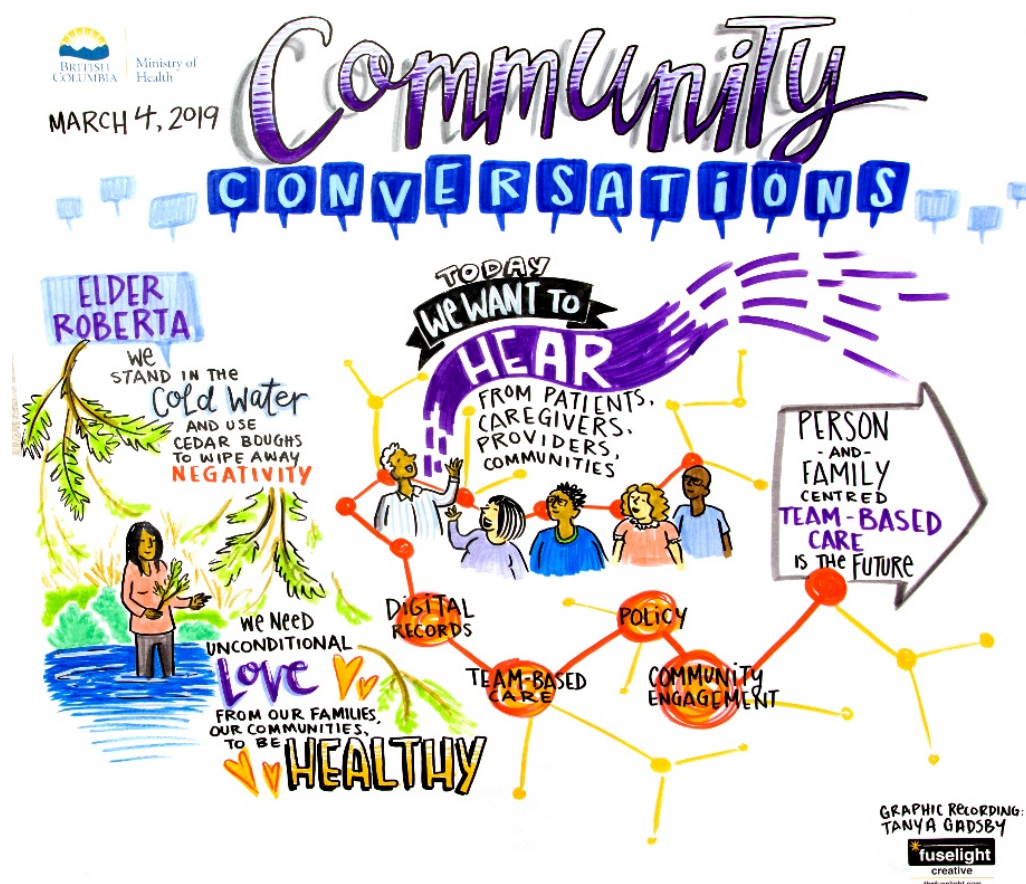 BRITISH
COLUMBIA
Ministry of
Health
MARCH 4, 2019
Community
CONVERSATIONS
ELDER
ROBERTA
WE
STAND IN THE
Cold Water
AND USE
CEDAR BOUGHS
TO WIPE AWAY
NEGATIVITY
WE NEED
UNCONDITIONAL
LOVE
FROM OUR FAMILIES,
OUR COMMUNITIES,
TO BE
HEALTHY
TODAY
WE WANT TO
HEAR
FROM PATIENTS,
CAREGIVERS,
PROVIDERS,
COMMUNITIES
DIGITAL
RECORDS
TEAM-BASED
CARE
POLICY
COMMUNITY
ENGAGEMENT
PERSON
-AND-
FAMILY
CENTRED
TEAM-BASED
CARE
IS THE FUTURE
GRAPHIC RECORDING:
TANYA GADSBY
fuselight
creative